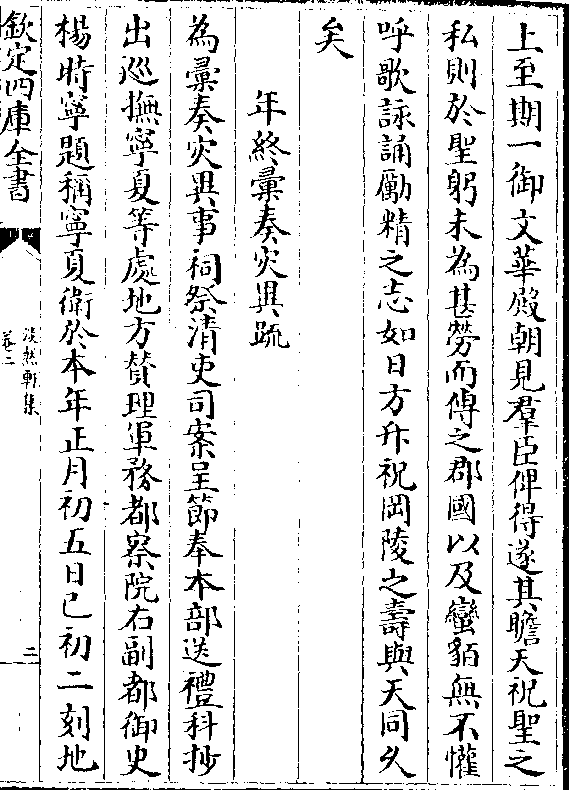 上至期一御文華殿朝見羣臣俾得遂其瞻天祝聖之
私則於聖躬未為甚勞而傳之郡國以及蠻貊無不懽
呼歌詠誦勵精之志如日方升祝岡陵之壽與天同久
矣
年終彙奏灾異疏
為彙奏灾異事祠祭清吏司案呈節奉本部送禮科抄
出巡撫寧夏等處地方贊理軍務都察院右副都御史
楊時寧題稱寧夏衛於本年正月初五日巳初二刻地
欽定四庫全書
淡然軒集
卷二
二